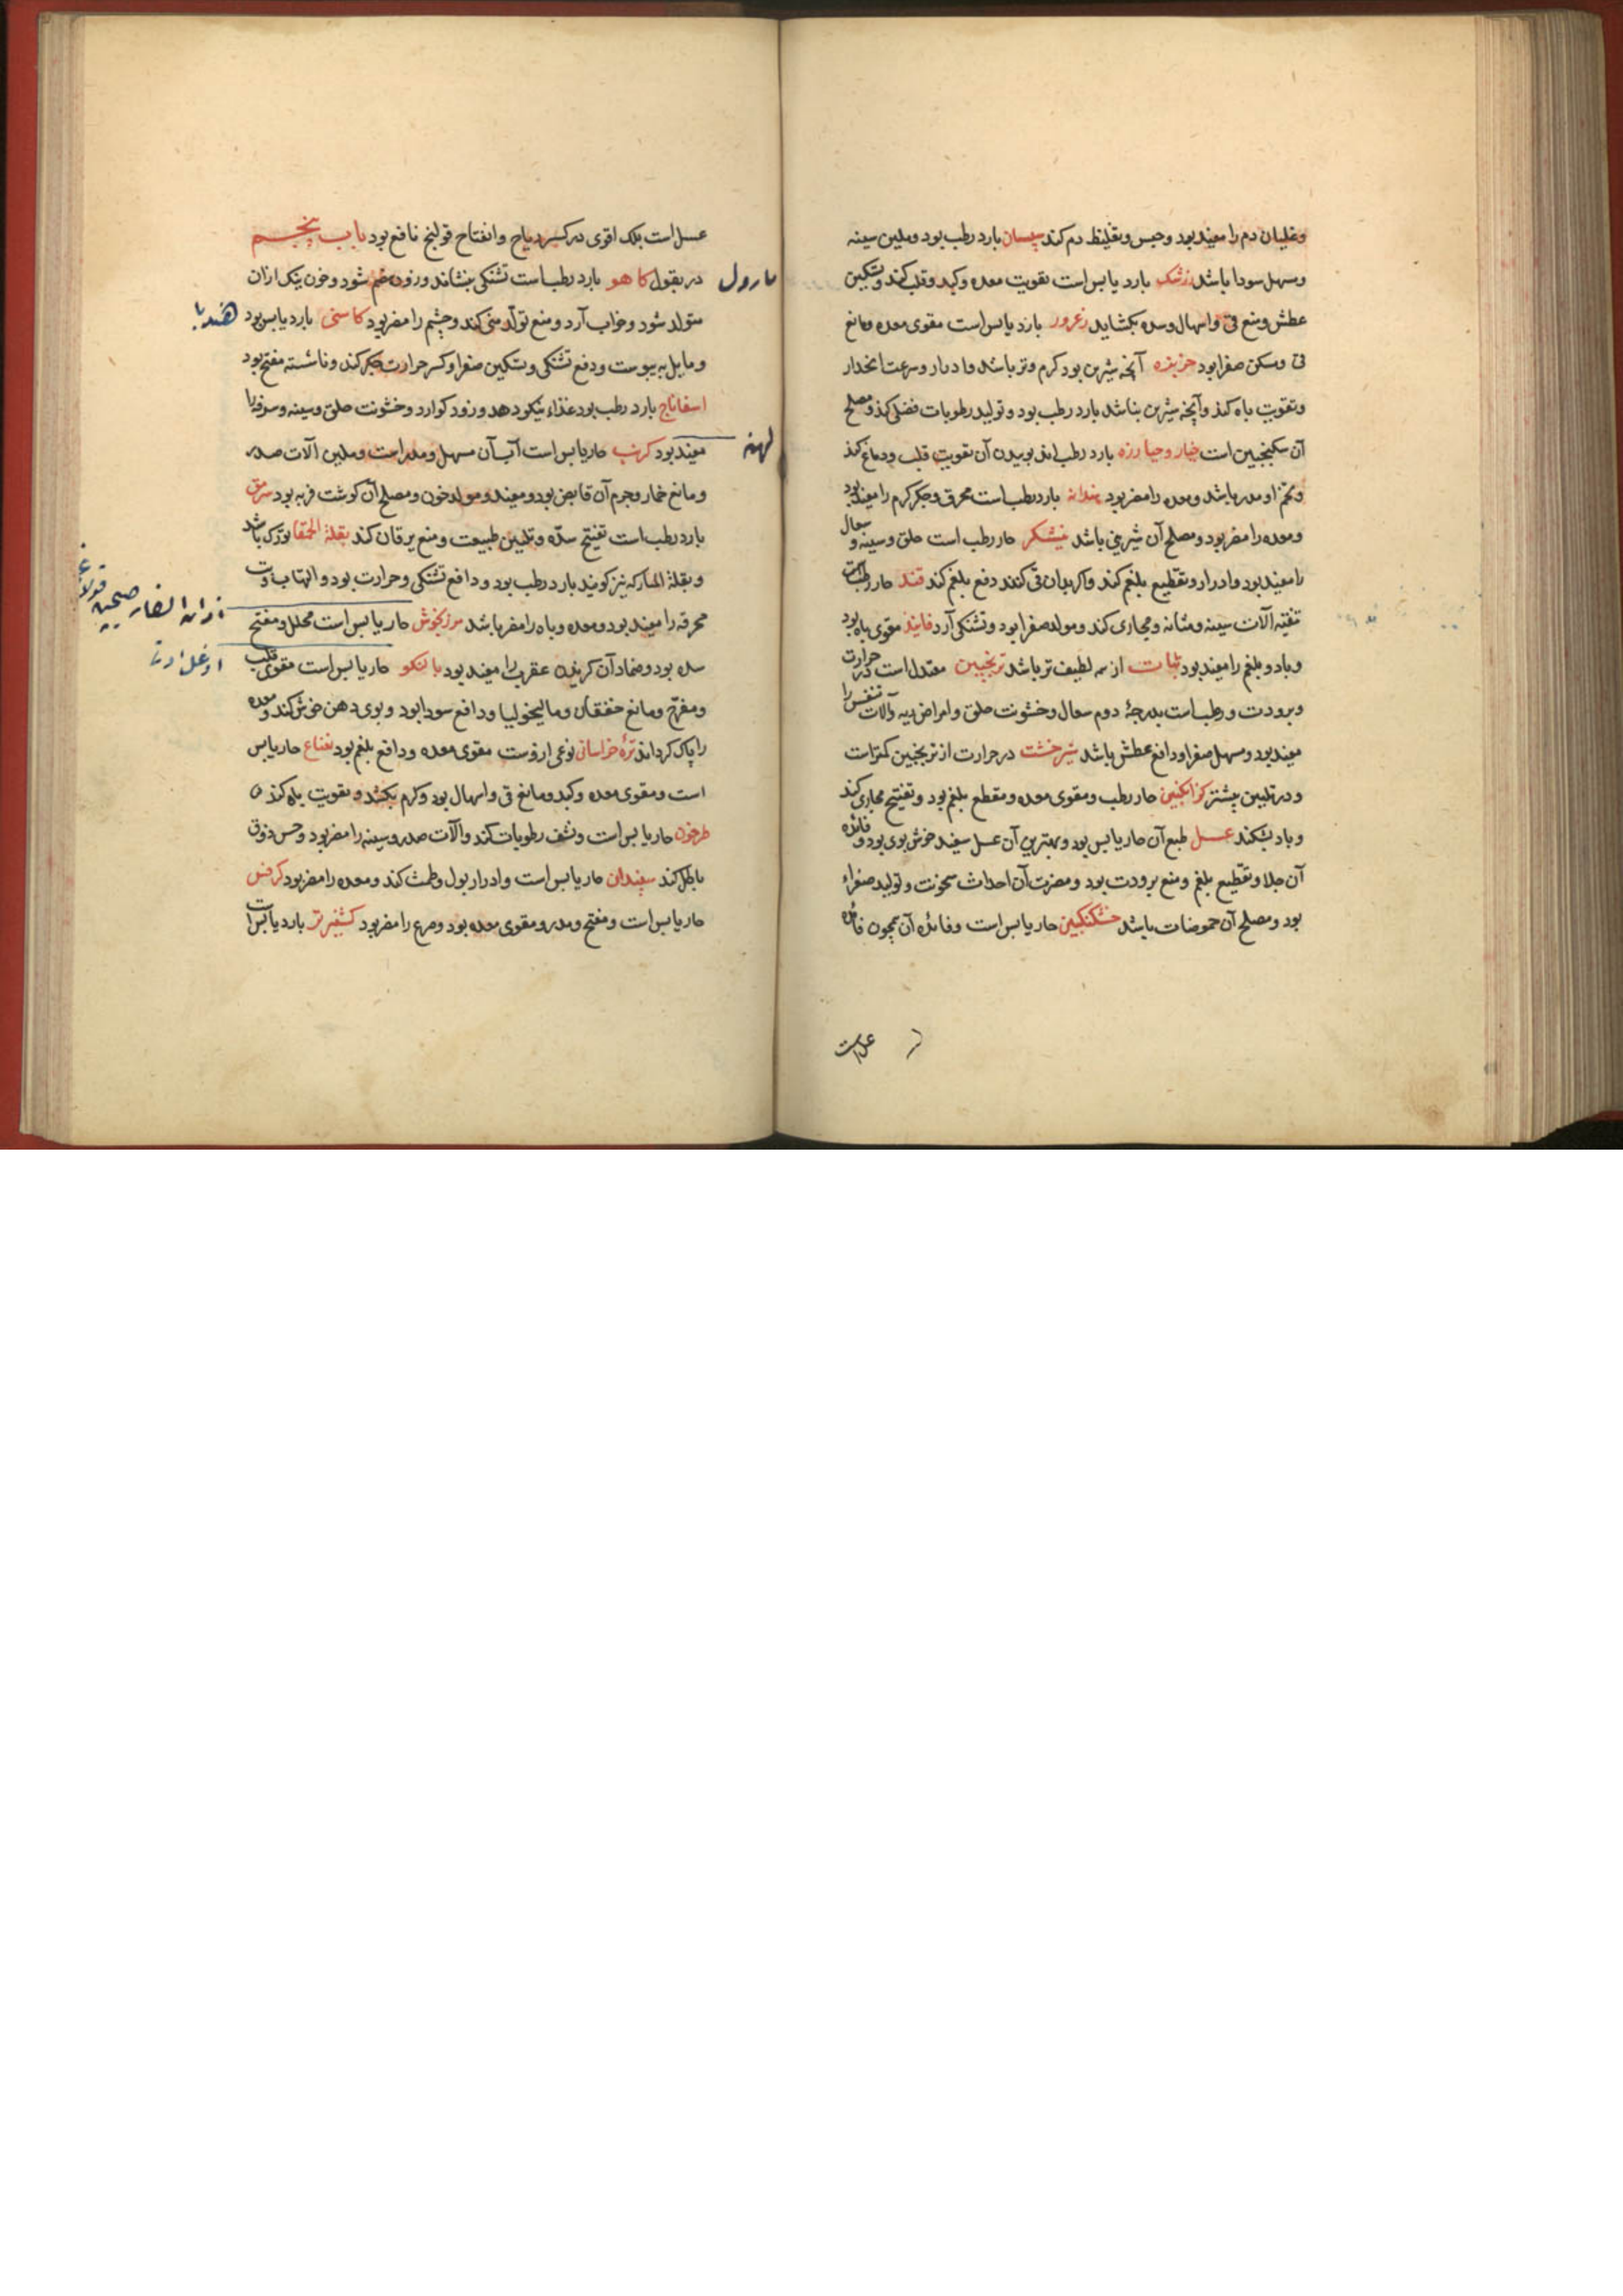 وغلیان دم را مفید بود وحبس وتغلیظ دم کند سپستان بارد رطب بود وملین سینه
ومسهل سودا باشد زرشک بارد یابس است تقویت معده وکبد وقلب کند وتسکین
عطش ومنع قی واسهال وسده بکشاید زعرور بارد یابس است مقوی معده ومانع
قی ومسکن صفرا بود خربزه آنچه شیرین بود کرم وتر باشد وادرار وسرعت انحدار
وتقویت باه کند وآنچه شیرین نباشد بارد رطب بود وتولید رطوبات فضلی کند ومصلح
آن سکنجبین است خیار وخیارزه بارد رطب اند بوییدن آن تقویت قلب ودماغ کند
وتخم او مدر باشد ومعده را مضر بود هندانه بارد رطب است محرق وجکر کرم را مفید بود
ومعده را مضر بود ومصلح آن شیرینی باشد نیشکر حار رطب است حلق وسینه وسعال
را مفید بود وادرار وتقطیع بلغم کند واکر بدان قی کنند دفع بلغم کند قند حار رطب است
تنقیه آلات سینه ومثانه ومجاری کند ومولد صفرا بود وتشنکی آرد فانید مقوی باه بود
وباد وبلغم را مفید بود نبات از همه لطیف تر باشد ترنجبین معتدل است در حرارت
وبرودت ورطب است بدرجهٔ دوم سعال وخشونت حلق وامراض ریه وآلات تنفس را
مفید بود ومسهل صفرا ودافع عطش باشد شیرخشت در حرارت از ترنجبین کمتر است
ودر تلیین بیشتر کزانکبین حار رطب ومقوی معده ومقطع بلغم بود وتفتیح مجاری کند
وباد بشکند عسل طبع آن حار یابس بود وبهترین آن عسل سفید خوش بوی بود وفائده
آن جلا وتقطیع بلغم ومنع برودت بود ومضرت آن احداث سخونت وتولید صفراء
بود ومصلح آن حموضات باشد خشکنکبین حار یابس است وفائدهٔ آن همچون فائدهٔ
عسل است
عسل است بلکه اقوی در کسر ریاح وانفتاح قولنج نافع بود باب پنجم
در بقول کاهو بارد رطب است تشنکی بنشاند وزود هضم شود وخون نیک ازان
مارول
متولد شود وخواب آرد ومنع تولد منی کند وچشم را مضر بود کاسنی بارد یابس بود
هندبا
ومایل به یبوست ودفع تشنکی وتسکین صفرا وکسر حرارت جکر کند وناشسته مفتح بود
اسفاناج بارد رطب بود غذاء نیکو دهد وزود کوارد وخشونت حلق وسینه وسرفه را
مفید بود کرنب حار یابس است آب آن مسهل ومدر است وملین آلات صدر
لهنه
ومانع خمار وجرم آن قابض بود ومفید ومولد خون ومصلح آن کوشت فربه بود سرمق
بارد رطب است تفتیح سدّه وتلیین طبیعت ومنع یرقان کند بقلة الحمقا تورک باشد
وبقلة المبارکه نیز کویند بارد رطب بود ودافع تشنکی وحرارت بود والتهاب وتب
محرقه را مفید بود ومعده وباه را مضر باشد مرزنکوش حار یابس است محلل ومفتح
سده بود وضماد آن کزیدن عقرب را مفید بود بالنکو حار یابس است مقوی قلب
ومفرّح ومانع خفقان ومالیخولیا ودافع سودا بود وبوی دهن خوش کند ومعده
را پاک کرداند ترهٔ خراسانی نوعی ازوست مقوی معده ودافع بلغم بود نعناع حار یابس
است ومقوی معده وکبد ومانع قی واسهال بود وکرم بکشد وتقویت باه کند
طرخون حار یابس است ونشف رطوبات کند وآلات صدر وسینه را مضر بود وحس ذوق
باطل کند سپندان حار یابس است وادرار بول وطمث کند ومعده را مضر بود کرفس
حار یابس است ومفتح ومدر ومقوی معده بود وصرع را مضر بود کشنیز تر بارد یابس است